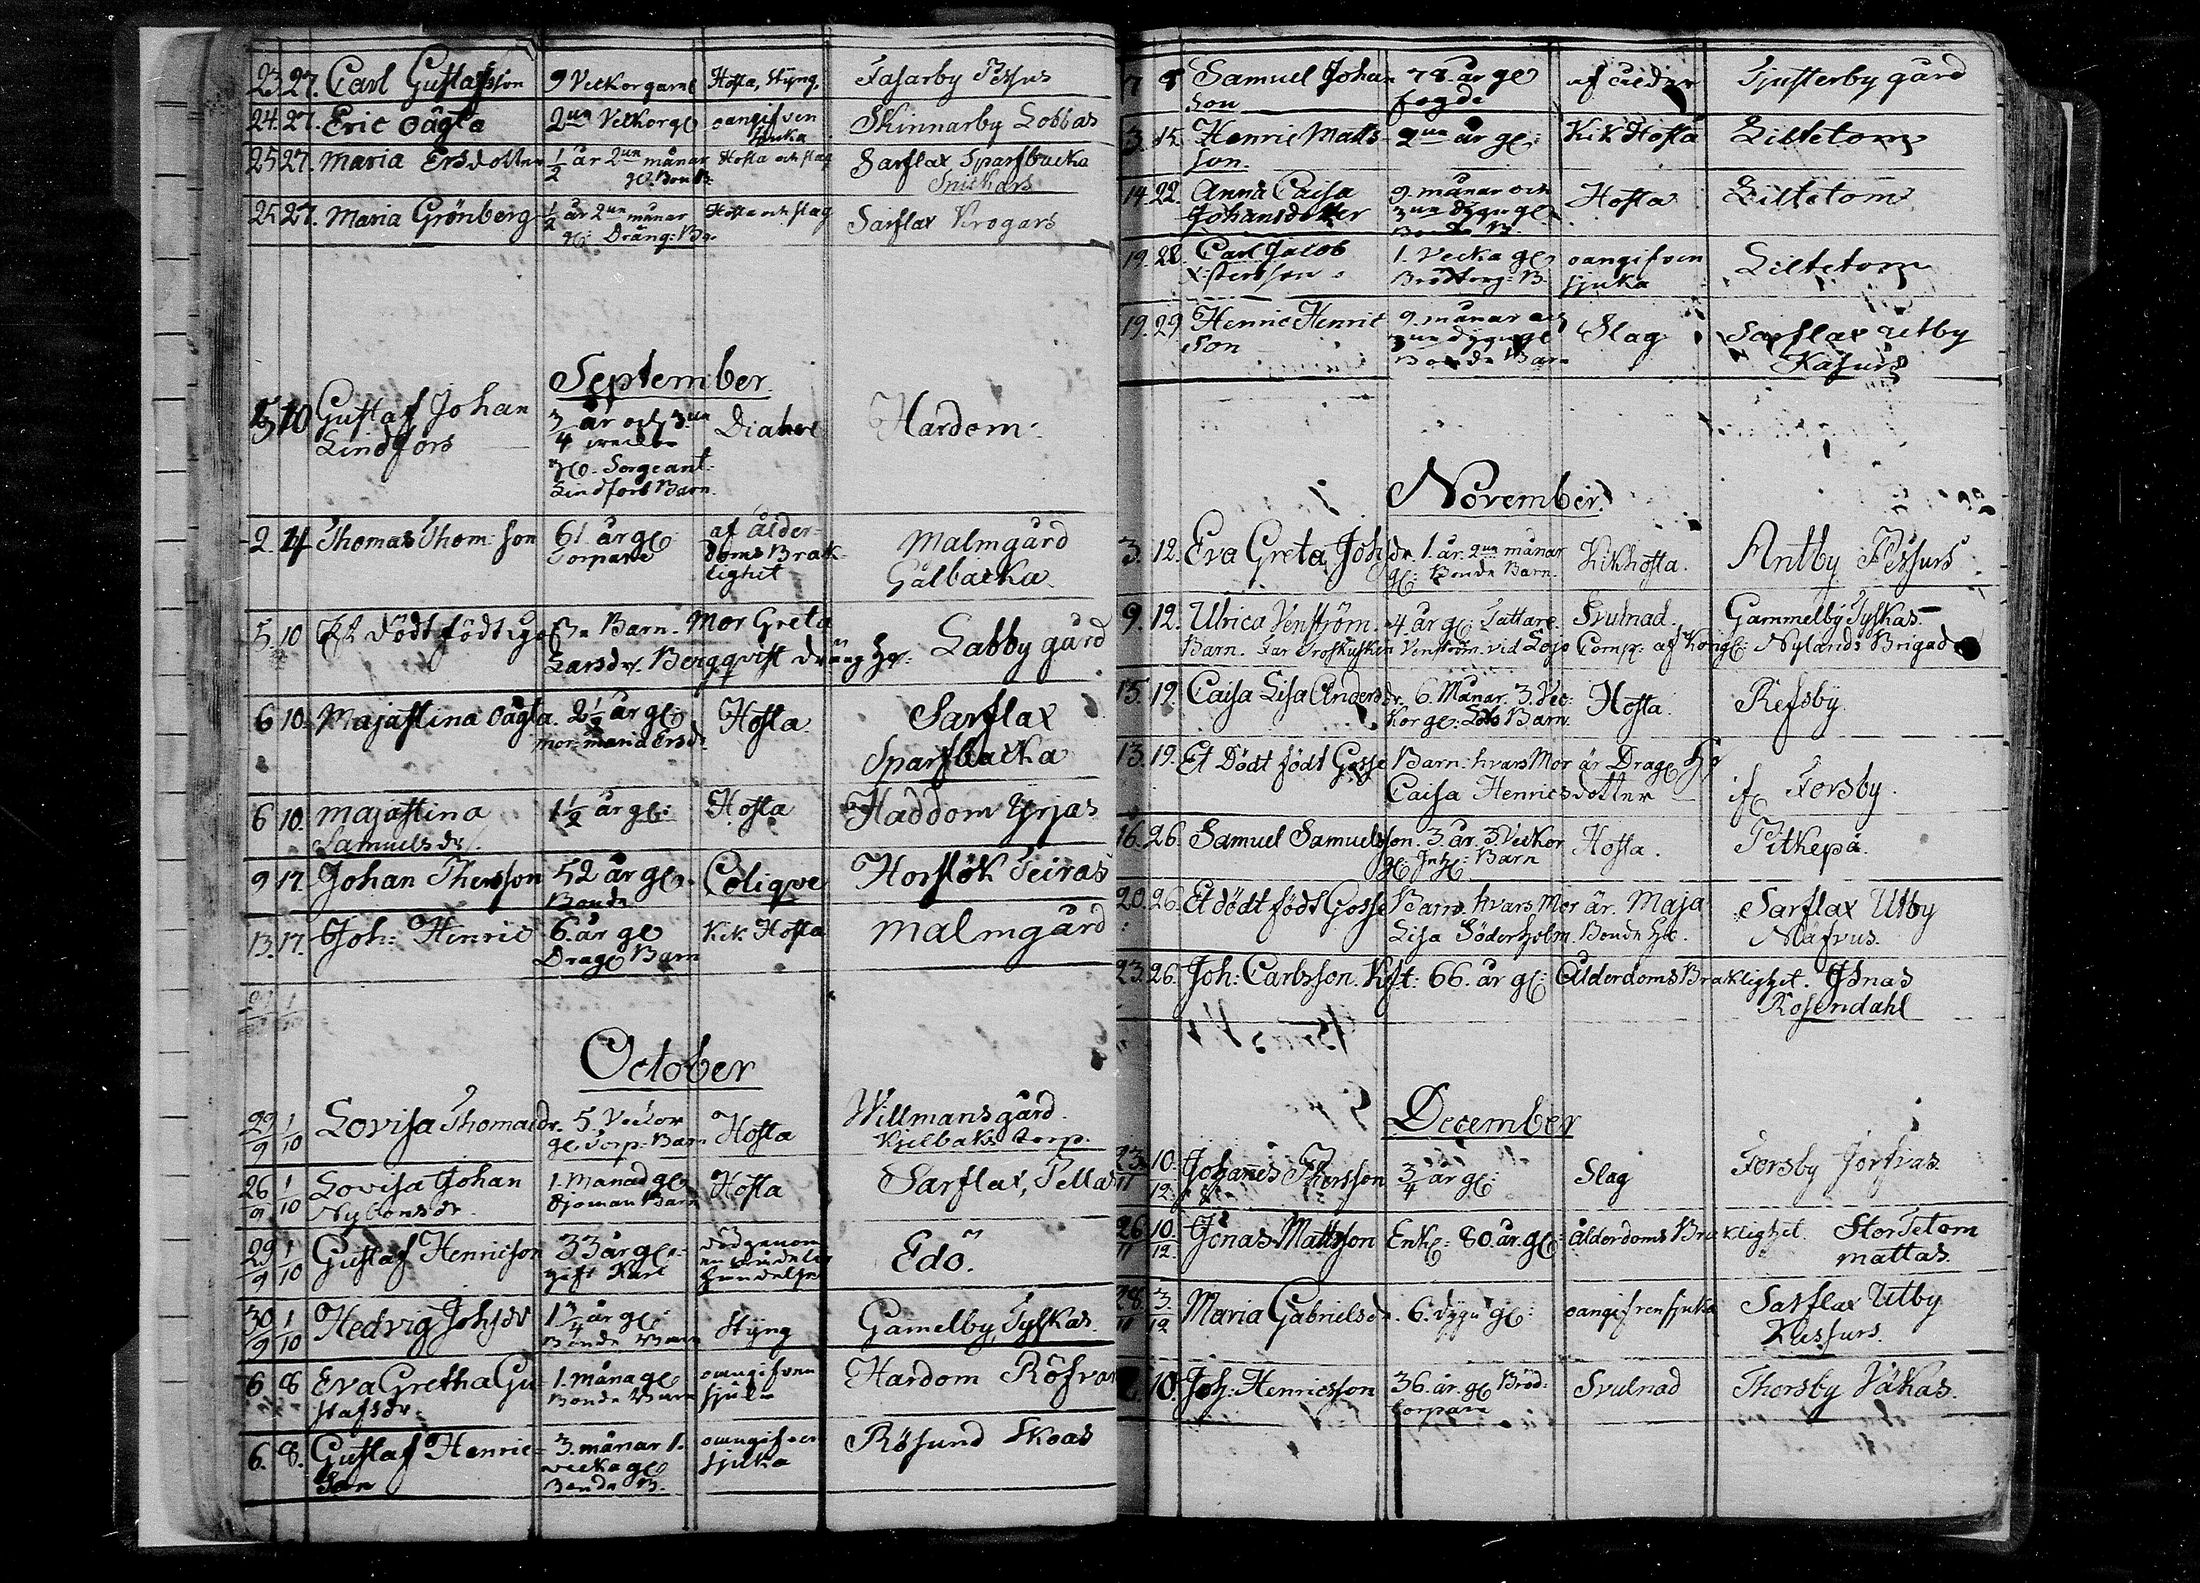 23. 27. Carl Gustafsson 9 Veckor gaml Hosta, Styng. Fasarby Pessus
24. 27. Eric oägta 2ua Veckor gl oangifven sjuka Skinnarby Lobbas
25 27. Maria Ersdotter 1/2 år 2ua månar gl. Bond B: Hosta och slag Sarflax Sparfbacka Snickars
25 27. Maria Grönberg 1/2 år 2ua månar gl: Dräng: Ba. Hosta och slag Sarflax Krogars
September
5 10 Gustaf Johan Lindfors 3/4 år och 3ua veckor gl. Sergeant Lindfors Barn Hardom
2. Thomas Thom: son 61 år gl: Torpare af ålderdoms Bräklighet Malmgård Gålbacka
5. 10 Ett Dödt född gosse Barn. Mor Greta Larsdr. Bergqvist dräng Labby gård
6 10. Majastina oägta. 2 1/2 år gl: mor: maria Ersdr Hosta Sarflax Sparfbacka
6 10. Majastina Samuelsdr. 1 1/2 år gl: Hosta Haddom Yrjas
9 17. Johan Thersson 52 år gl. Bonde Colique Horslök Teiras
13. 17. Joh: Henric 6. år gl Drag Barn Kik Hosta Malmgård
October
29/9 1/10 Lovisa Thomasdr. 5. Veckor gl. Torp. Barn Hosta Willmansgård Kjelbacks torp.
26/9 1/10 Lovisa Johan Nylonsdr 1. Månad gl Sjöman Barn Hosta Sarflax, Pellas
29/9 1/10 Gustaf Henricson 33 år gl: gift Karl död genom en händelse Edö.
30/9 1/10 Hedvig Johsdr 1 3/4 år gl: Bonde Barn Styng Gamelby, Tyskas
6 8 Eva Gretha Gustafsdr. 1. måna gl Bonde Barn oangifven sjuka Hardom Röfvar
6. 8. Gustaf Henricson 3. månar 1. vecka gl Bonde B. oangifven sjuka Rösund Skoas
7 8 Samuel Johanson 78 år gl fogde af ålder Tjusterby gård
3. 15. Henric Mattsson 2ua år gl: Kik Hosta Liltetom
14. 22. Anna Caisa Johansdotter 9. månar och 3ua dygn gl Bonde B Hosta Liltetom
19. 22. Carl Jacob Xstersson 1. Vecka gl Brödtorp: B. oangifven sjuka Liltetom
19. 29 Henric Henricson 9. månar och 3ua dygn gl Bonde Barn Slag Sarflax Utby Kasurs
November
3. 12. Eva Greta Johsdr 1. år. 2ua månar gl: Bonde Barn. Kikhosta. Antby Pessurs
9. 12. Ulrica Venström. 4 år gl: Tattare Svulnad. Gammelby Tyskas
Barn. Far Venström. vid Lojo Comp: af Kongl: Nylands Brigad
15. 19. Caisa Lisa Andersdr. 6. Månar. 3. Veckor gl: Barn. Hosta. Refsby.
13. 19. Et Dödt född Gosse Barn: hvars Mor är Drag Caisa Henricsdotter if Forsby.
16. 26. Samuel Samuelsson. 3. år. 3 Veckor gl: Inh: Barn Hosta. Pitkepä.
20. 26. Et dödt född Gosse Barn. hvars Mor är. Maja Lisa Söderholm. Bonde Sarflax Utby Näfvus.
23. 26. Joh: Carlsson. Kft: 66. år gl: Ålderdoms Bräklighet. Jonas Rosendahl
December
23/11 10/12. Johannes Thersson 3/4 år gl: Slag Forsby Jorfvas
26/11 10/12. Jonas Mattsson Enkl: 80. år. gl: Ålderdoms Bräklighet. Stor Tetom Mattas.
28/11 3/12 Maria Gabrielsdr. 6. dygn gl: oangifven sjuka Sarflax Utby Klessurs.
10. Joh: Henricsson 36. år. gl Bröd: torpare Svulnad Thorsby Väkas.